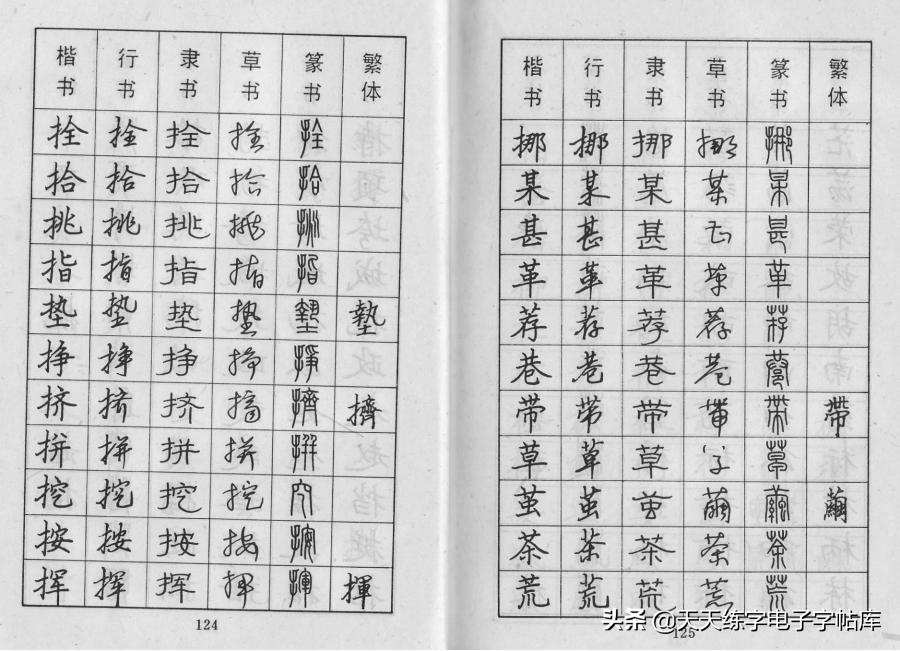 楷书 行书 隶书 草书 篆书 繁体
拴 拴 拴 拴 拴
拾 拾 拾 拾 拾
挑 挑 挑 挑 挑
指 指 指 指 指
垫 垫 垫 垫 墊 墊
挣 挣 挣 挣 挣
挤 挤 挤 挤 擠 擠
拼 拼 拼 拼 拼
挖 挖 挖 挖
按 按 按 按 按
挥 挥 挥 挥 揮 揮
124
楷书 行书 隶书 草书 篆书 繁体
挪 挪 挪 挪 挪
某 某 某 某 某
甚 甚 甚 甚 甚
革 革 革 革 革
荐 荐 荐 荐 荐
巷 巷 巷 巷
带 带 带 帶 帶 帶
草 草 草 草
茧 茧 茧 繭 繭 繭
茶 茶 茶 茶 茶
荒 荒 荒 荒 荒
125
头条 @天天练字电子字帖库